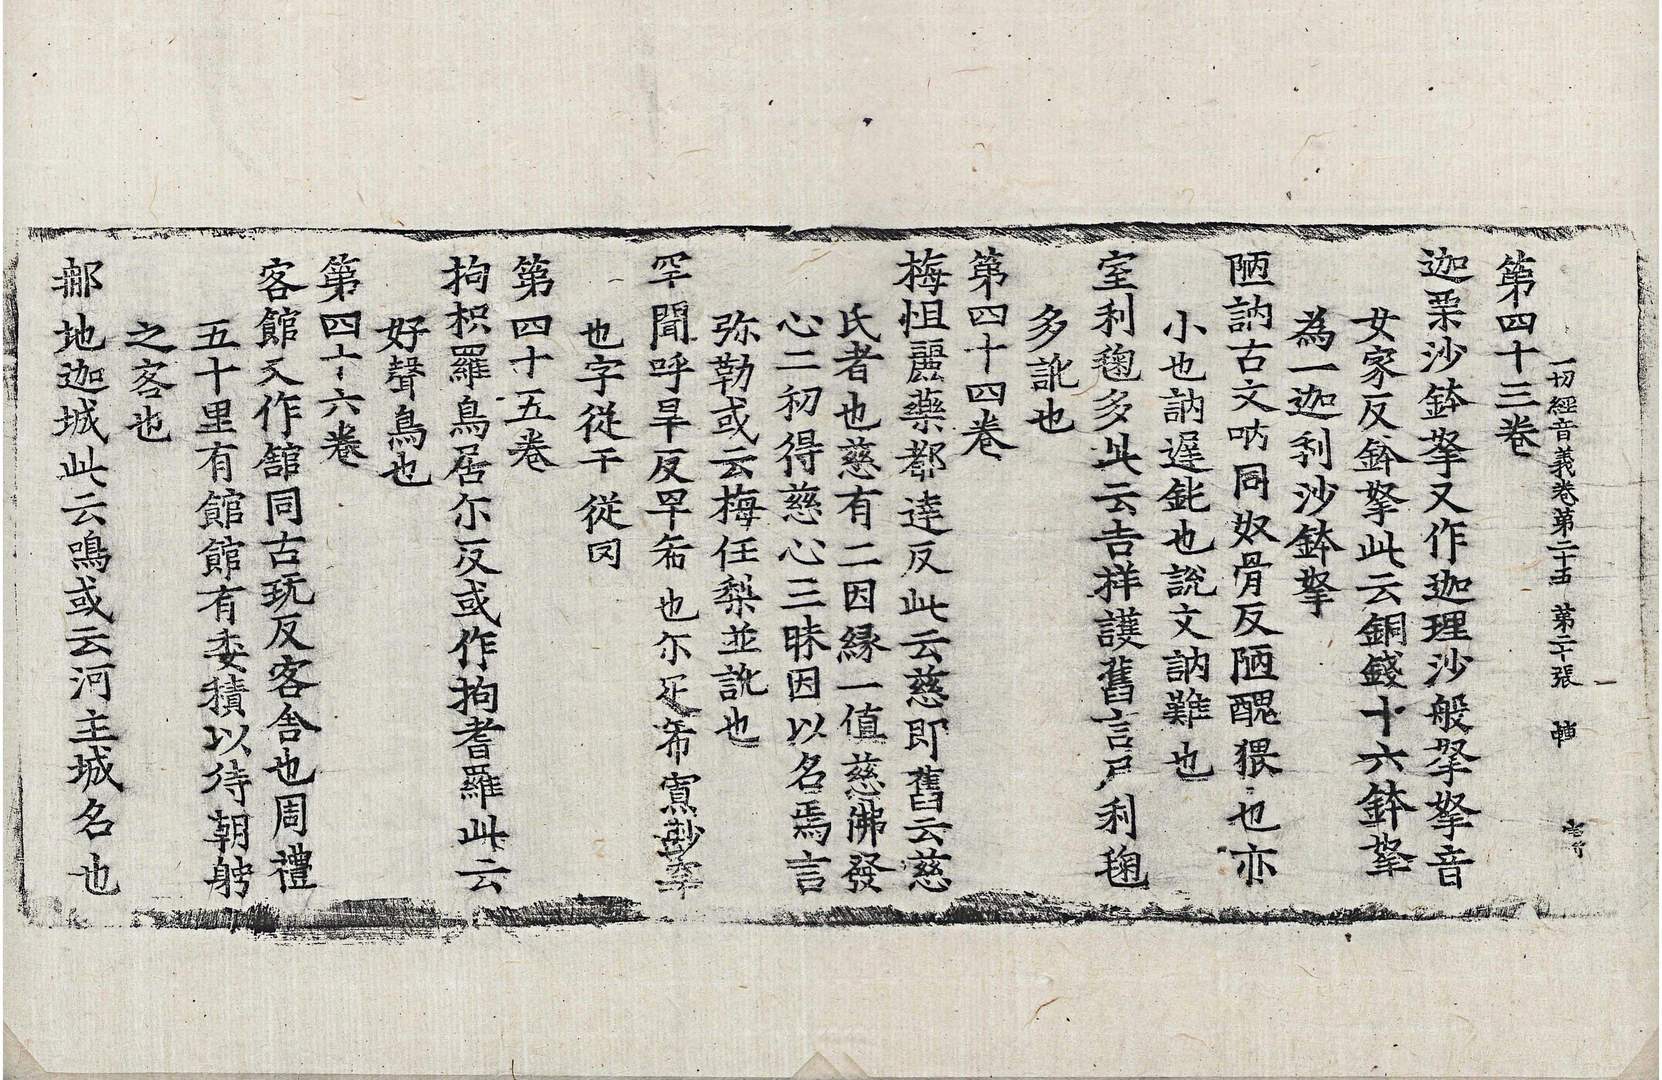 一切経音義卷第二十五 第二十張
第四十三卷
迦栗沙鉢拏又作迦理沙般拏拏音
女家反鉢拏此云銅錢十六鉢拏
為一迦利沙鉢拏
陋訥古文呐同奴骨反陋醜猥也亦
小也訥遲鈍也說文訥難也
室利毱多此云吉祥護舊言尸利毱
多訛也
第四十四卷
梅怛麗藥都達反此云慈即舊云慈
氏者也慈有二因縁一值慈佛發
心二初得慈心三昧因以名焉言
弥勒或云梅任梨並訛也
罕聞呼旱反罕希也尔疋希寡尠罕
也字從干從冈
第四十五卷
拘枳羅鳥居尔反或作拘耆羅此云
好聲鳥也
第四十六卷
客館又作舘同古玩反客舍也周禮
五十里有館館有委積以待朝聘
之客也
郍地迦城此云鳴或云河主城名也